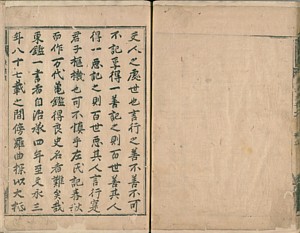 夫人之處世也言行之善不善不可
不記乎得一善記之則百世善其人
得一惡記之則百世惡其人言行寔
君子樞機也可不慎乎左氏記春秋
而作万代亀鑑得良史名者難矣哉
東鑑一書者自治承四年至文永三
年八十七載之間傍羅曲探以大抵